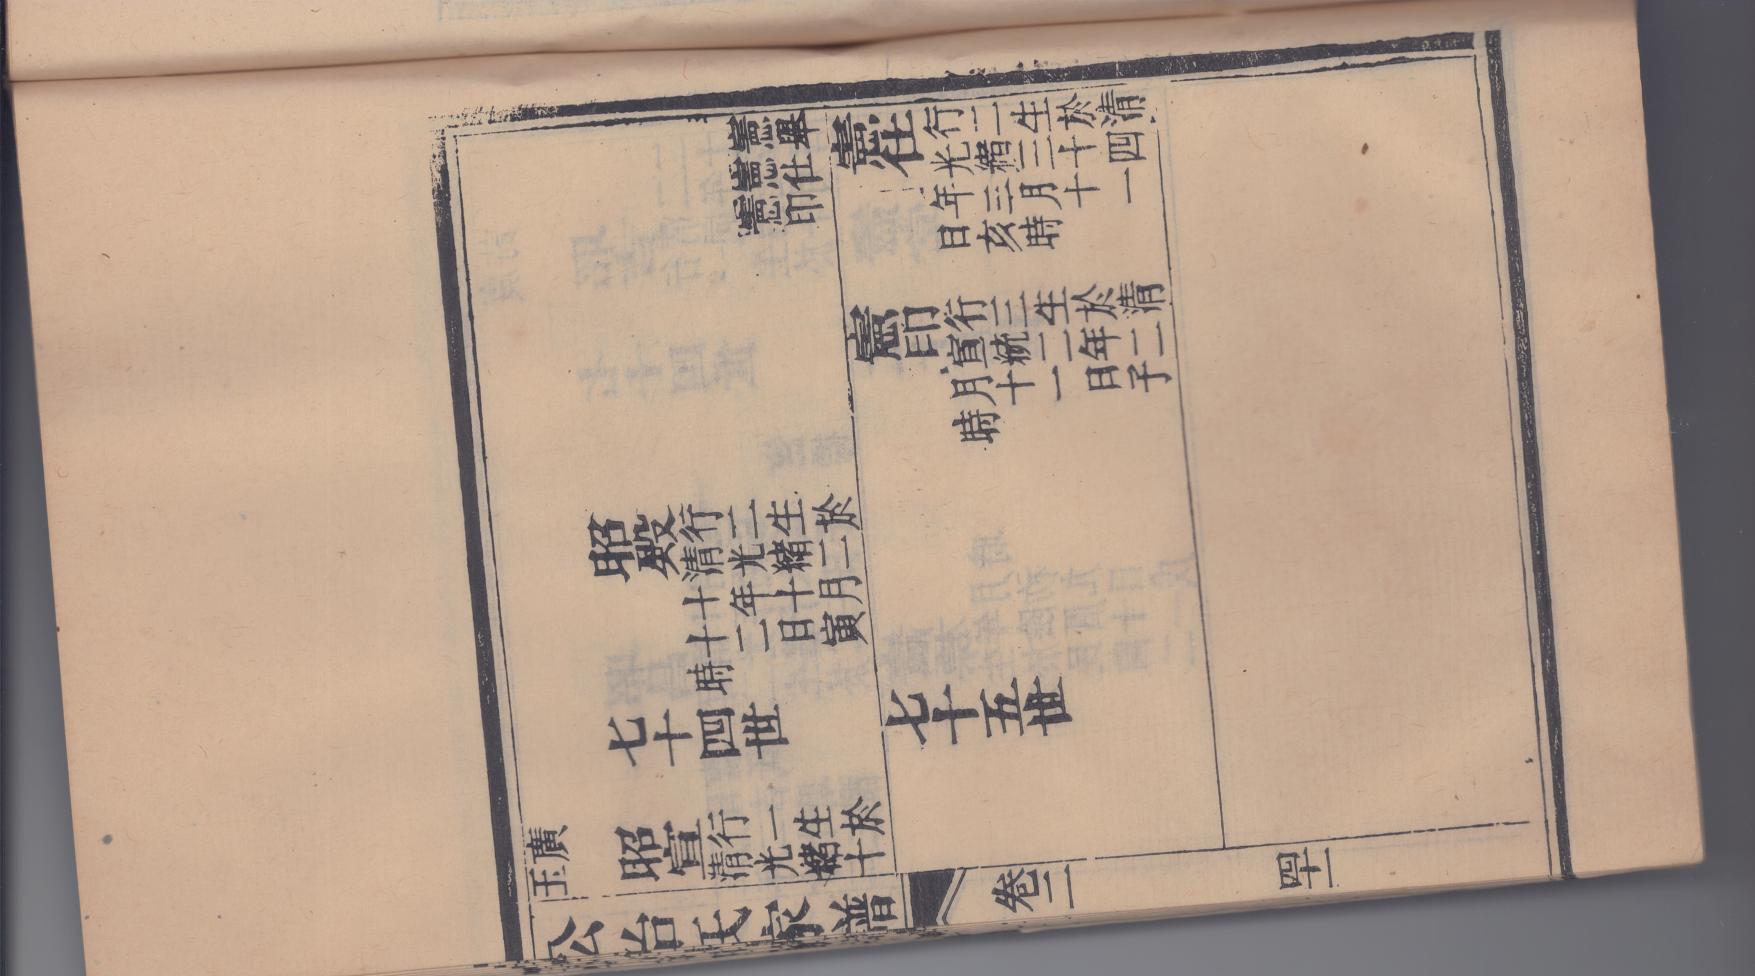 憲舉
憲仕
憲印
昭殿
行二生於
清光緒二
十年十月
十二日寅
時
七十四世
廣
玉
昭宣
行一生於
清光緒十
憲仕
行二生於清
光緒三十四
年三月十一
日亥時
憲印
行三生於清
宣統二年二
月十一日子
時
七十五世
公冶氏家譜
卷二
四一